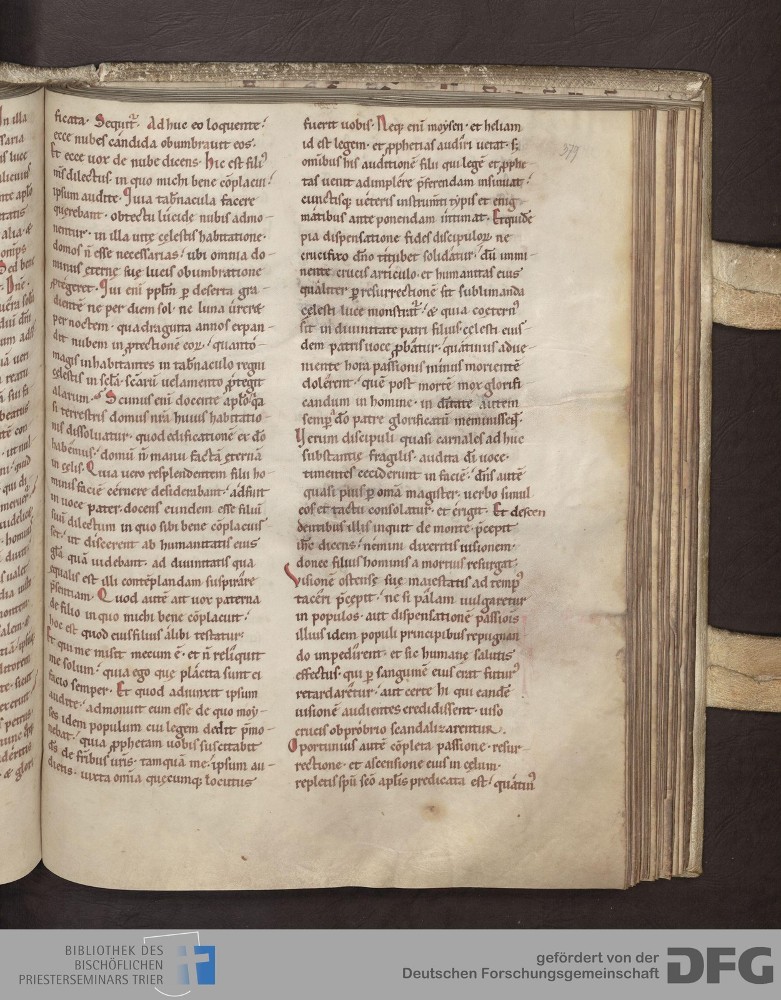 ficata. Sequit̃. Adhuc eo loquente.
ecce nubes candida obumbrauit eos.
Et ecce uox de nube dicens. Hic est fili⁹
m̃s dilectus in quo michi bene cõplacui.
ipsum audite. Quia tab̃nacula facere
querebant. obtectu lucide nubis admo-
nentur. in illa uite celestis habitatione.
domos ñ esse necessarias. ubi omnia do-
minus eterne sue lucis obumbratione
ꝓtegeret. Qui eni ppl̃m ꝑ deserta gra-
dientẽ ne per diem sol. ne luna ureret
per noctem. quadraginta annos expan-
dit nubem in ꝓtectionẽ eoꝝ. quanto
magis inhabitantes in tab̃naculo regni
celestis in sc̃la. sc̃arũ uelamento ꝓtegit
alarum. Scimus eni docente aplõ. q̃a
si terrestris domus nr̃a huius habitatio-
nis dissoluatur. quod edificationẽ ex dõ
habemus. domũ ñ manu factã eternã
in celis. Quia uero resplendentem filii ho-
minis faciẽ cernere desiderabant. adfuit
in uoce pater. docens eundem esse filiũ
suũ dilectum in quo sibi bene cõplacuis
set. ut discerent ab humanitatis eius
gl̃a quã uidebant. ad diuinitatis qua
equalis est illi contẽplandam suspirare
p̃sentiam. Quod autẽ ait uox paterna
de filio in quo michi bene cõplacuit.
hoc est quod eius filius alibi testatur.
Et qui me misit mecum ẽ. et ñ reliquit
me solum. quia ego que placita sunt ei
facio semper. Et quod adiunxit ipsum
audite. admonuit eum esse de quo moy-
ses idem populum cui legem dedit p̃mo-
nebat. quia ꝓphetam uobis suscitabit
d̃s de fr̃ibus ur̃is. tamquã me. ipsum au-
dietis. iuxta omĩa quecumq; locutus
379
fuerit uobis. Neq; eni moysen. et heliam
id est legem. et ꝓphetias audiri uetat. s;
omĩbus his auditionẽ filii qui legẽ et ꝓphe
tas uenit adimplere p̃ferendam insinuat.
cunctisq; ueteris instrum̃ti typis et enig-
matibus ante ponendam intimat. Et quidẽ
pia dispensatione fides discipuloꝝ ne
crucifixo dño titubet solidatur. dũ immi-
nente crucis articulo. et humanitas eius
qualiter ꝑ resurrectionẽ sit sublimanda
celesti luce monstrat̃. et quia coetern⁹
sit in diuinitate patri filius celesti eius-
dem patris uoce ꝓbatur. quatinus adue-
niente hora passionis minus morientẽ
dolerent. quẽ post mortẽ mox glorifi
candum in homine. in d̃itate autem
semp̃ dõ patre glorificatũ meminissent.
Verum discipuli quasi carnales adhuc
substantie fragilis. audita di uoce.
timentes ceciderunt in faciẽ. dñs autẽ
quasi pius ꝑ omã magister. uerbo simul
eos et tactu consolatur. et erigit. Et descen
dentibus illis inquit de monte. p̃cepit
ihc̃ dicens. nemini dixeritis uisionem.
donec filius hominis a mortuis resurgat.
Visionẽ ostense sue maiestatis ad temp⁹
taceri p̃cepit. ne si palam uulgaretur
in populos. aut dispensationẽ passiõis
illius idem populi principibus repugnan
do impedirent. et sic humane salutis
effectus. qui ꝑ sanguinẽ eius erat futur⁹
retardaretur. aut certe hi qui eandẽ
uisionẽ audientes credidissent. uiso
crucis obprobrio scandalizarentur.
Oportunius autẽ cõpleta passione. resur-
rectione. et ascensione eius in celum.
repletis spũ sc̃o aplĩs predicata est. quatin⁹
BIBLIOTHEK DES
BISCHÖFLICHEN
PRIESTERSEMINARS TRIER
gefördert von der
Deutschen Forschungsgemeinschaft
DFG